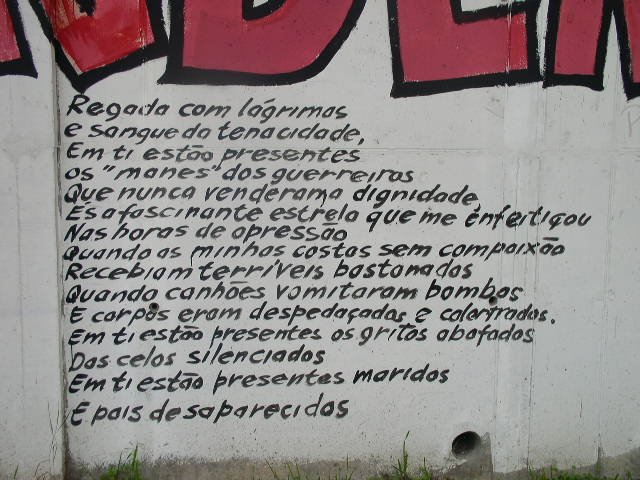 Regada com lágrimas
e sangue da tenacidade,
Em ti estão presentes
os "manes" dos guerreiros
Que nunca venderam a dignidade
És a fascinante estrela que me enfeitiçou
Nas horas de opressão
Quando as minhas costas sem compaixão
Recebiam terríveis bastonadas
Quando canhões vomitaram bombas
E corpos eram despedaçados e calcitrados.
Em ti estão presentes os gritos abafados
Dos celos silenciados
Em ti estão presentes maridos
E pais desaparecidos